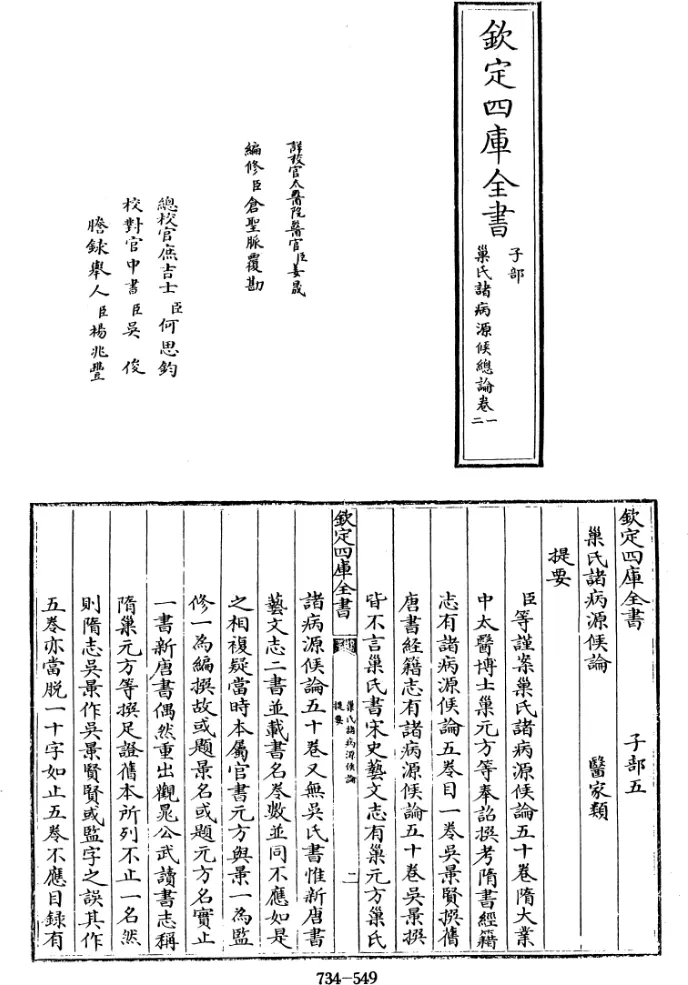 欽定四庫全書
子部
巢氏諸病源候總論卷一
二
詳校官太醫院醫官臣姜晟
編修臣倉聖脈覆勘
總校官庶吉士臣何思鈞
校對官中書臣吳俊
謄錄舉人臣楊兆豐
欽定四庫全書 子部五
巢氏諸病源候論 醫家類
提要
臣等謹案巢氏諸病源候論五十卷隋大業
中太醫博士巢元方等奉詔撰考隋書經籍
志有諸病源候論五卷目一卷吳景賢撰舊
唐書經籍志有諸病源候論五十卷吳景撰
皆不言巢氏書宋史藝文志有巢元方巢氏
欽定四庫全書
巢氏諸病源候論
提要
二
諸病源候論五十卷又無吳氏書惟新唐書
藝文志二書並載書名卷數並同不應如是
之相複疑當時本屬官書元方與景一為監
修一為編撰故或題景名或題元方名實止
一書新唐書偶然重出觀晁公武讀書志稱
隋巢元方等撰足證舊本所列不止一名然
則隋志吳景作吳景賢賢或監字之誤其作
五卷亦當脫一十字如止五卷不應目録有
734-549